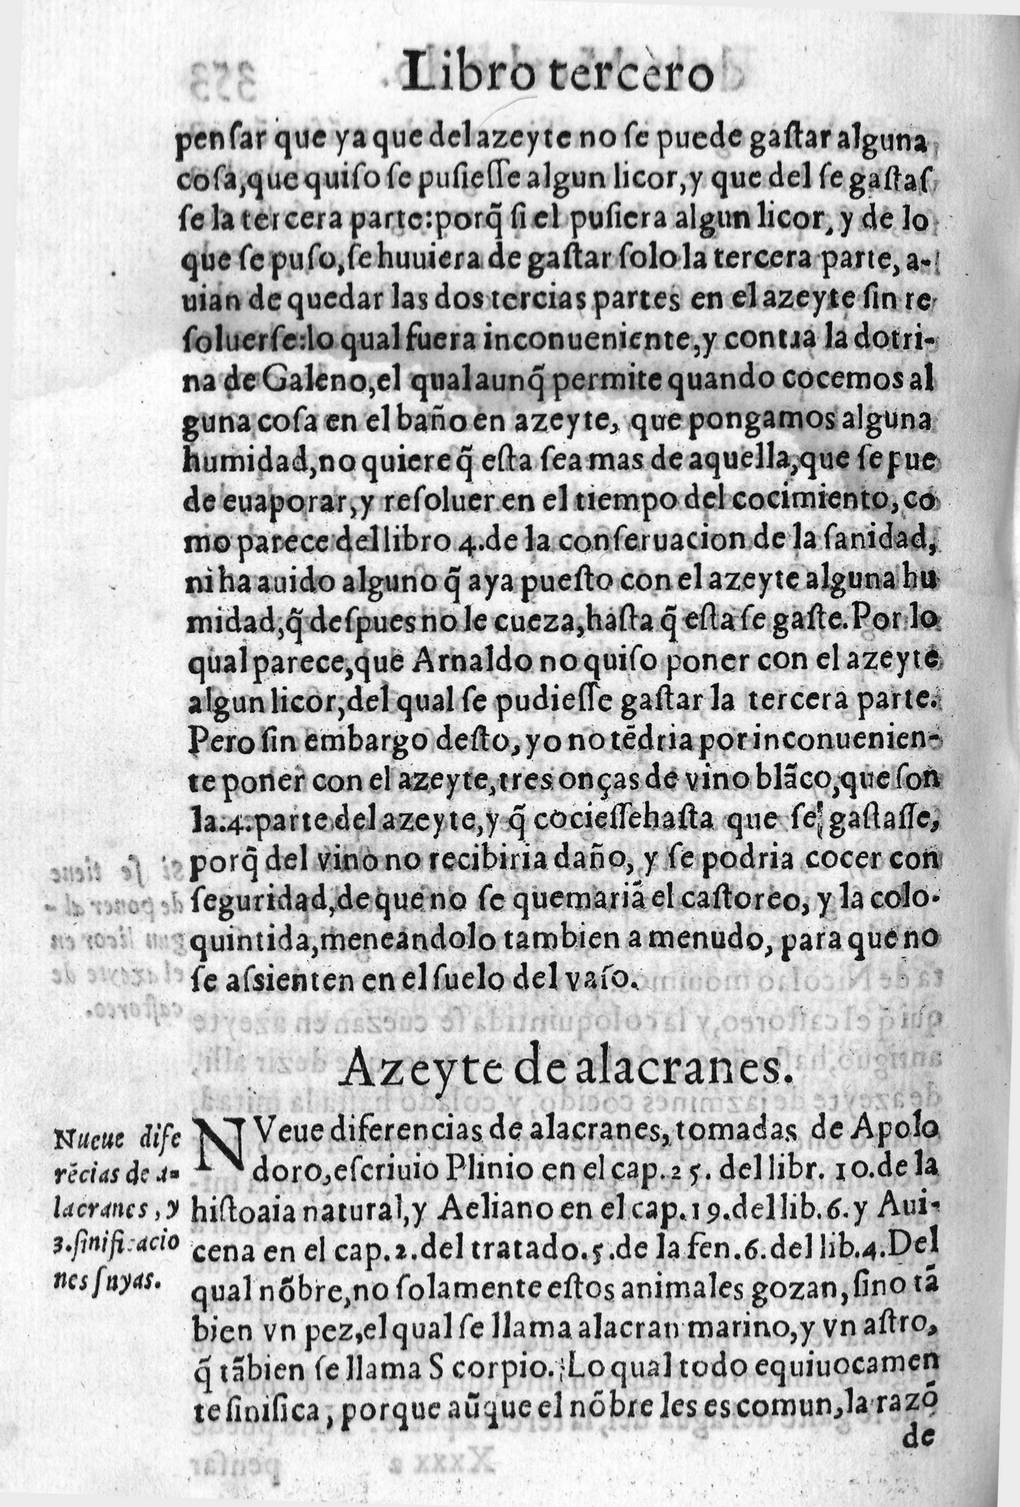 Libro tercero
pensar que ya que del azeyte no se puede gastar alguna
cosa, que quiso se pusiesse algun licor, y que del se gastas
se la tercera parte: porq̃ si el pusiera algun licor, y de lo
que se puso, se huuiera de gastar solo la tercera parte, a-
uian de quedar las dos tercias partes en el azeyte sin re
soluerse: lo qual fuera inconueniente, y contra la dotri-
na de Galeno, el qual aunq̃ permite quando cocemos al
guna cosa en el baño en azeyte, que pongamos alguna
humidad, no quiere q̃ esta sea mas de aquella, que se pue
de euaporar, y resoluer en el tiempo del cocimiento, co
mo parece del libro 4. de la conseruacion de la sanidad,
ni ha auido alguno q̃ aya puesto con el azeyte alguna hu
midad, q̃ despues no le cueza, hasta q̃ esta se gaste. Por lo
qual parece, que Arnaldo no quiso poner con el azeyte
algun licor, del qual se pudiesse gastar la tercera parte.
Pero sin embargo desto, yo no tẽdria por inconuenien-
te poner con el azeyte, tres onças de vino blãco, que son
la .4. parte del azeyte, y q̃ cociesse hasta que se gastasse,
porq̃ del vino no recibiria daño, y se podria cocer con
seguridad, de que no se quemariã el castoreo, y la colo-
quintida, meneandolo tambien a menudo, para que no
se assienten en el suelo del vaso.
Azeyte de alacranes.
Nueue dife
rẽcias de a-
lacranes, y
3. sinificacio
nes suyas.
NVeue diferencias de alacranes, tomadas de Apolo
doro, escriuio Plinio en el cap. 25. del libr. 10. de la
histoaia natural, y Aeliano en el cap. 19. del lib. 6. y Aui-
cena en el cap. 2. del tratado. 5. de la fen. 6. del lib. 4. Del
qual nõbre, no solamente estos animales gozan, sino tã
bien vn pez, el qual se llama alacran marino, y vn astro,
q̃ tãbien se llama Scorpio. Lo qual todo equiuocamen
te sinifica, porque aũque el nõbre les es comun, la razõ
de